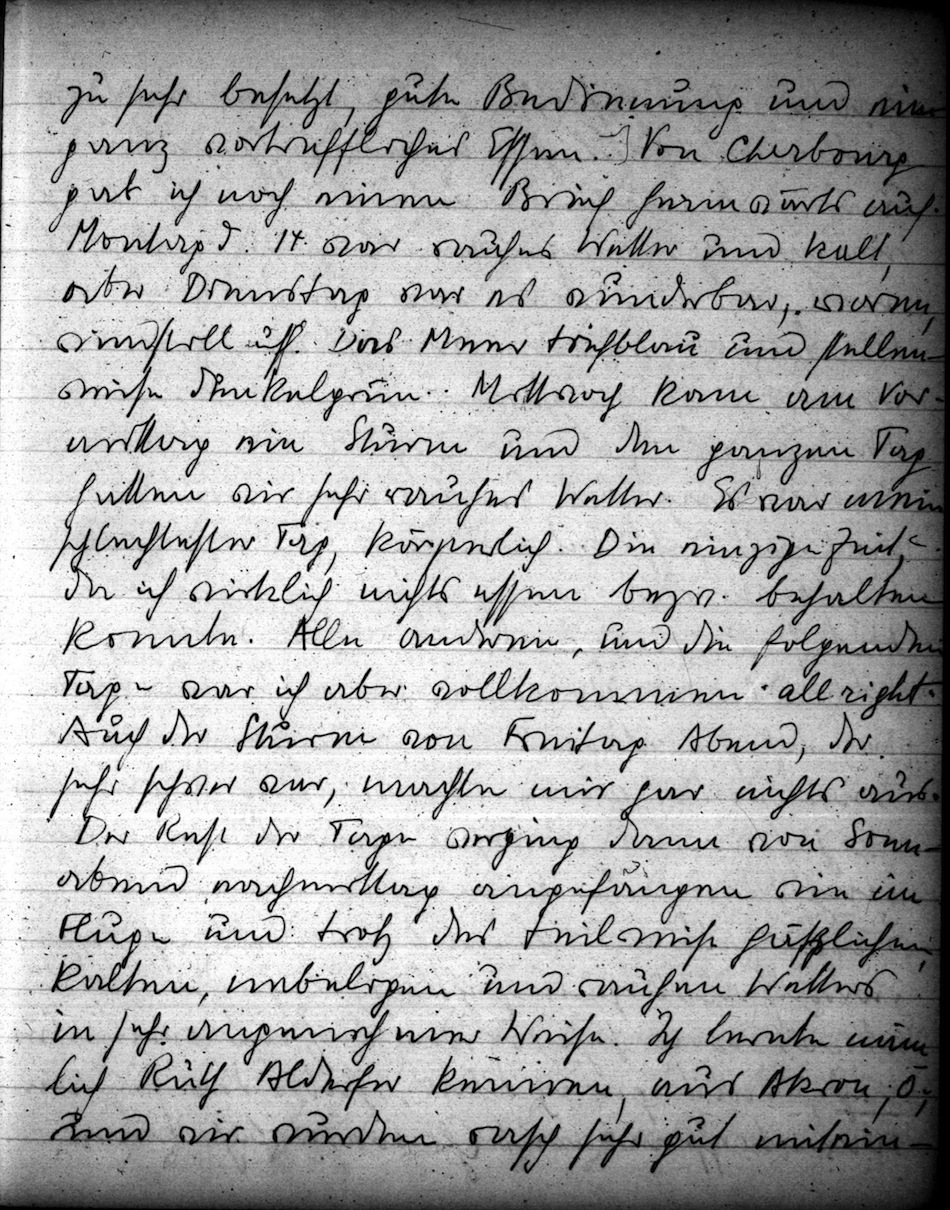 zu sehr besetzt, gute Bedienung und ein
ganz vortreffliches Essen. Von Cherbourg
gab ich noch einen Brief heimwärts auf.
Montag d. 14. war rauhes Wetter und kalt,
aber Dienstag war es wunderbar, warm,
windstill usf. Das Meer tiefblau und stellen-
weise dunkelgrün. Mittwoch kam am Vor-
mittag ein Sturm und den ganzen Tag
hatten wir sehr rauhes Wetter. Es war mein
schlechtester Tag, körperlich. Die einzige Zeit,
da ich wirklich nichts essen bezw. behalten
konnte. Alle anderen, und die folgenden
Tage war ich aber vollkommen all right.
Auch der Sturm von Freitag Abend, der
sehr schwer war, machte mir gar nichts aus.
Der Rest der Tage verging dann von Sonn-
abend nachmittag angefangen wie im
Fluge und trotz des teilweise häßlichen,
kalten, nebeligen und rauhen Wetters
in sehr angenehmer Weise. Ich lernte näm
lich Ruth Alderfer kennen, aus Akron, O.,
und wir wurden rasch sehr gut mitein-